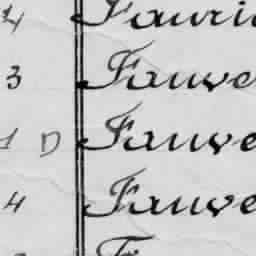 4 Fauri
3 Fauve
1 D Fauve
4 Fauve